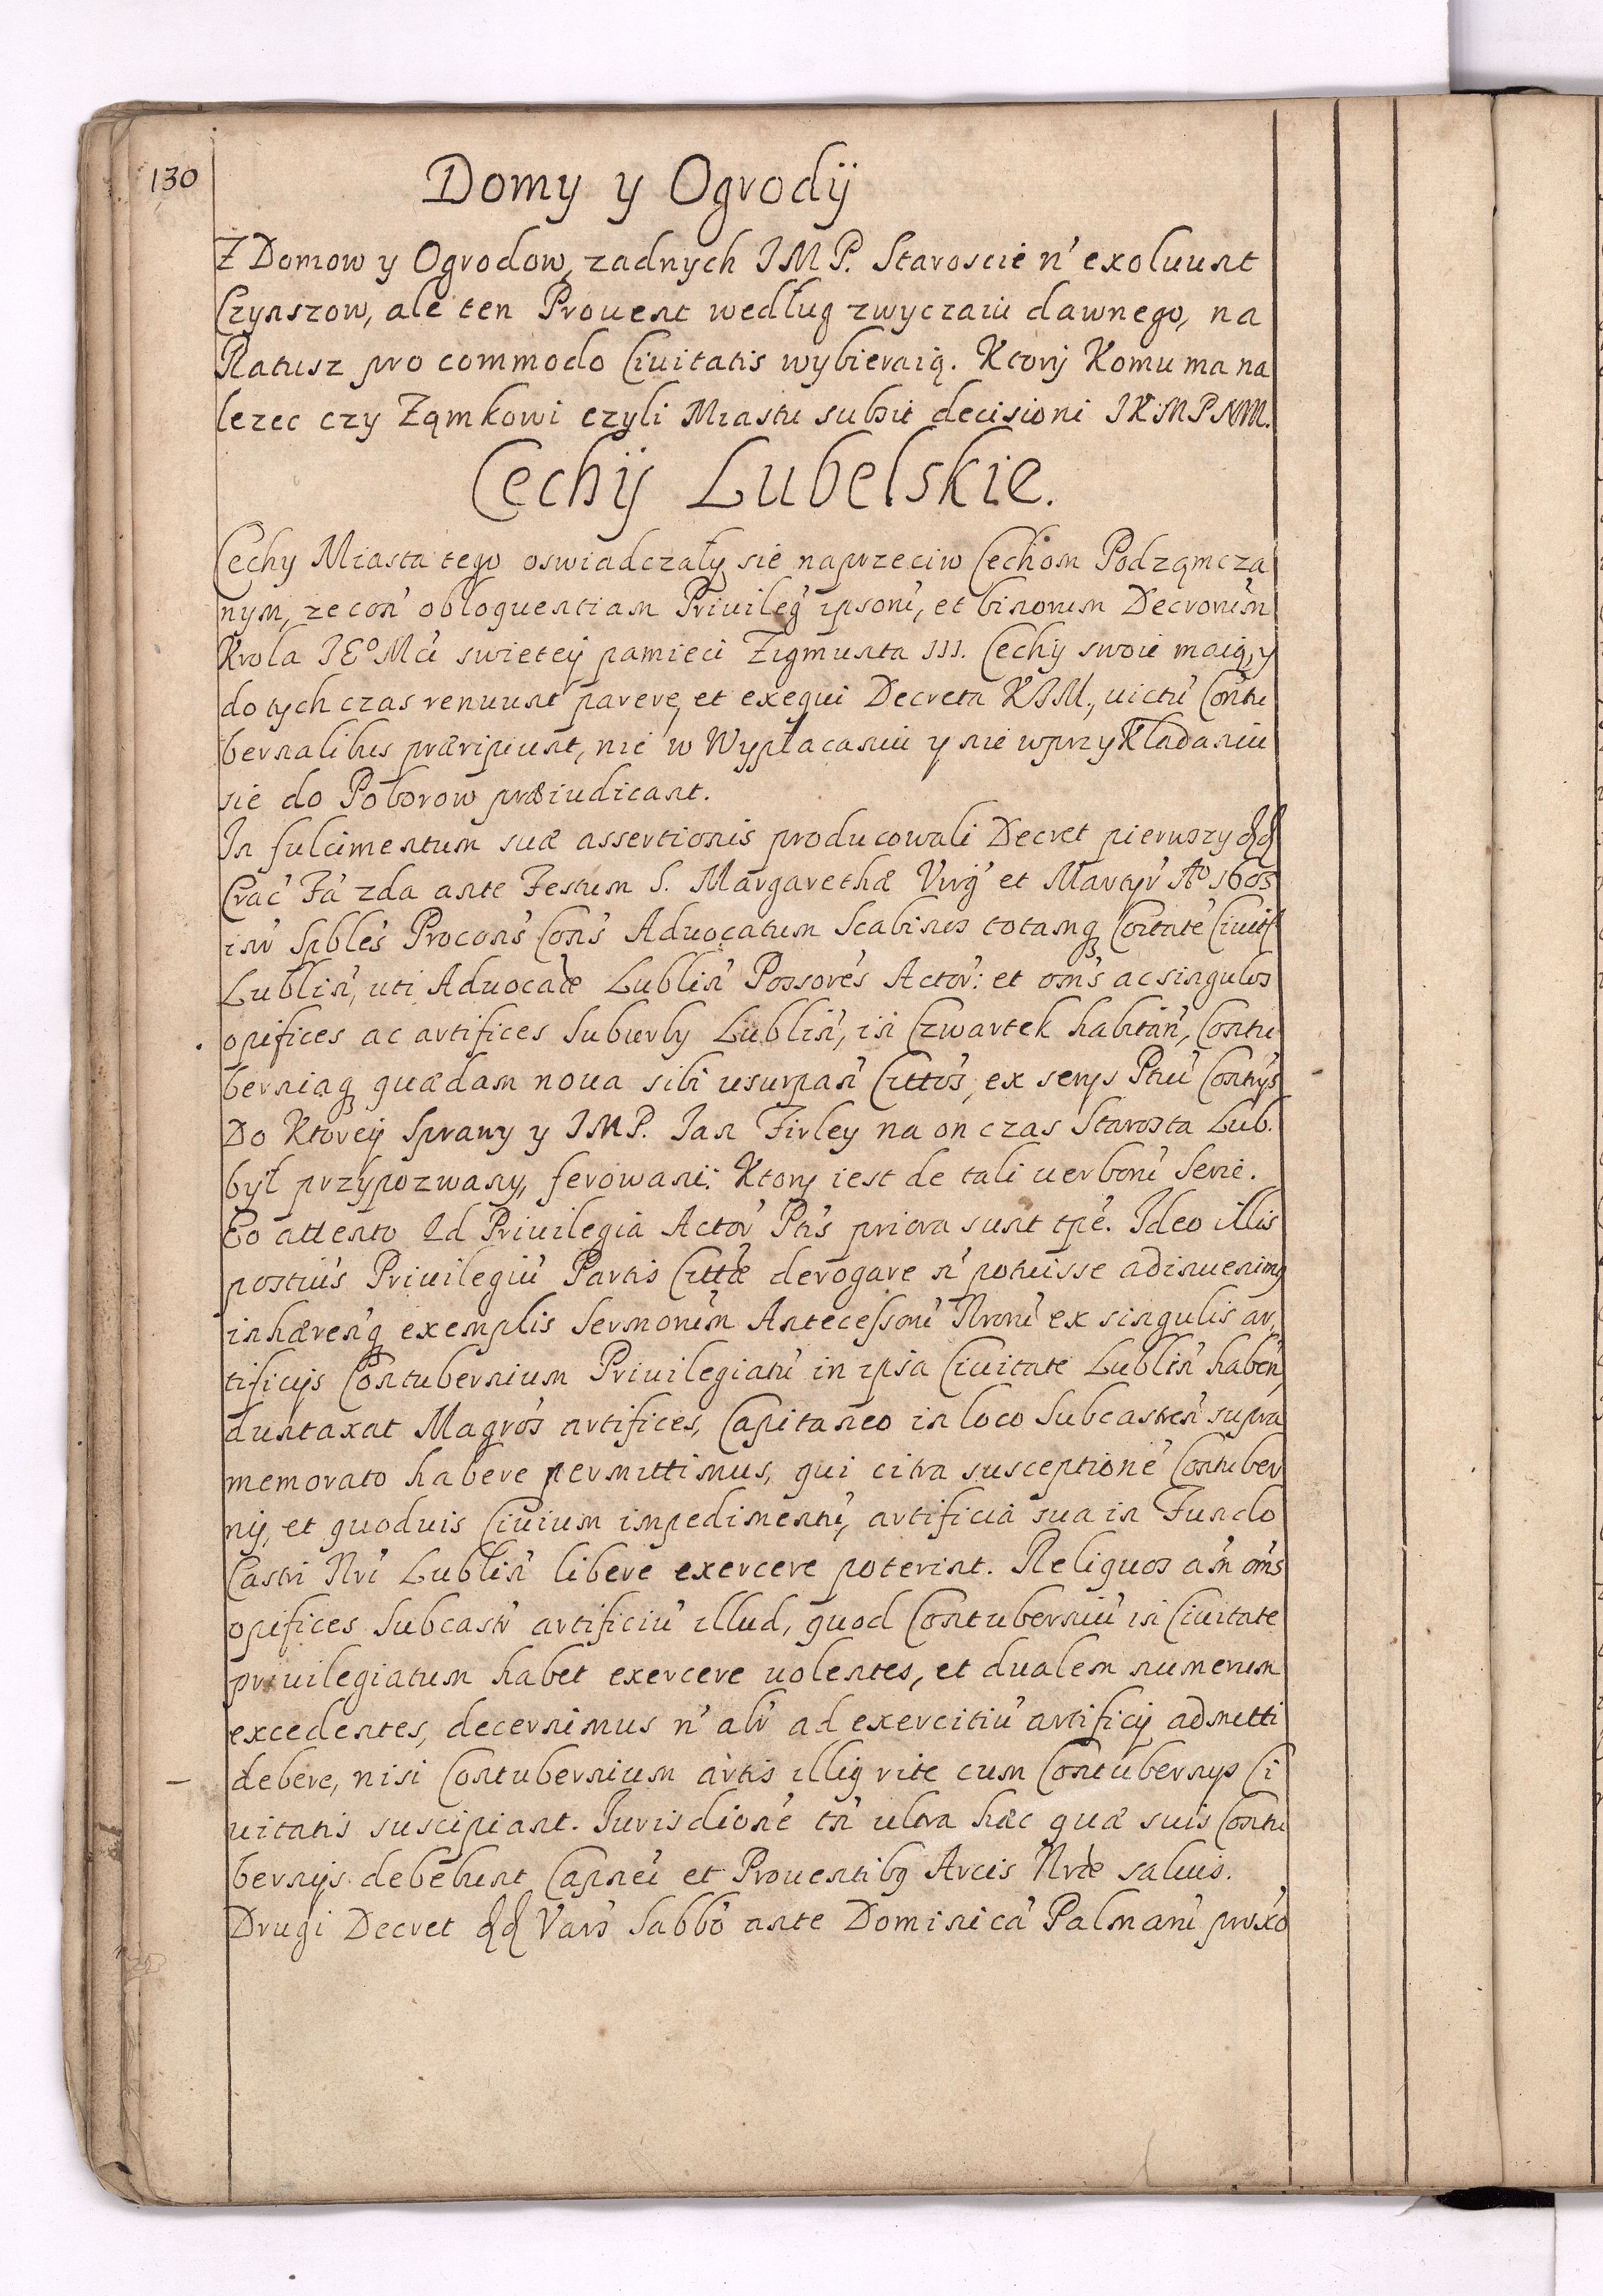 130
Domy y Ogrodÿ
Z Domow y Ogrodow, zadnych JMP. Staroscie n' exoluunt
Czynszow, ale ten Prouent według zwyczaiu dawnego, na
Ratusz pro commodo Ciuitatis wybieraią. Ktorÿ Komu ma na
lezec czy Ząmkowi czyli Miastu subiit decisioni JKMPNM.
Cechÿ Lubelskie.
Cechy Miasta tego oswiadczały sie naprzeciw Cechom Podząmcza
nym, ze con' obloquentiam Priuileg' ipsoru', et binorum Decroru'm
Krola JE°Mci swietey pamieci Zigmunta III. Cechÿ swoie maią, y
do tych czas renuunt parere, et exequi Decreta KJM., uictu' Contu
bernalibus præripiunt, nie w Wypłacaniu y nie w przykładaniu
sie do Poborow præiudicant.
In fulcimentum suæ assertionis producowali Decret pierwszy dd
Crac' Fa' 2da ante Festum S. Margarethæ Virg' et Martyr' A° 1605
int' Spbles' Procons' Cons' Aduocatum Scabinos totamq Coitate' Ciuit
Lublin', uti Aduocatæ Lublin' Possores' Actor': et oms' ac singulos
opifices ac artifices Suburby Lublin', in Czwartek habitan', Contu
berniaq quædam noua sibi usurpan' Cittos', ex senys Ptiu' Contrys
Do Ktorey Sprawy y JMP. Jan Firley na on czas Starosta Lub.
był przypozwany, ferowani: Ktory iest de tali uerboru' Serie.
Eo attento Qd Priuilegia Actor' Ptis priora sunt tpe'. Ideo illis
postius' Priuilegiu' Partis Cittæ derogare n' potuisse adinuenimq
inhæren'q exemplis Sermoru'm Antecessoru' Nroru' ex singulis ar,
tificijs Contubernium Priuilegiatu' in ipsa Ciuitate Lublin' haben,
duntaxat Magros' artifices, Capitaneo in loco Subcastren' supra
memorato habere permittimus, qui citra susceptione' Contuber
nÿ, et quoduis Ciuium impedimentu', artificia sua in Fundo
Castri Nri' Lublin' libere exercere poterint. Reliquos a'm oms'
opifices Subcastr' artificiu' illud, quod Contuberniu' in Ciuitate
priuilegiatum habet exercere uolentes, et dualem numerum
excedentes, decernimus n' altr' ad exercitiu' artificij admitti
debere, nisi Contubernium artis illiq rite cum Contubernys Ci
uitatis suscipiant. Iurisdione' tn' ultra hæc quæ suis Contu
bernÿs debebunt Capnei' et Prouentibq Arcis Nræ saluis.
Drugi Decret dd Vars' Sabbo' ante Dominica' Palmaru' proxo'